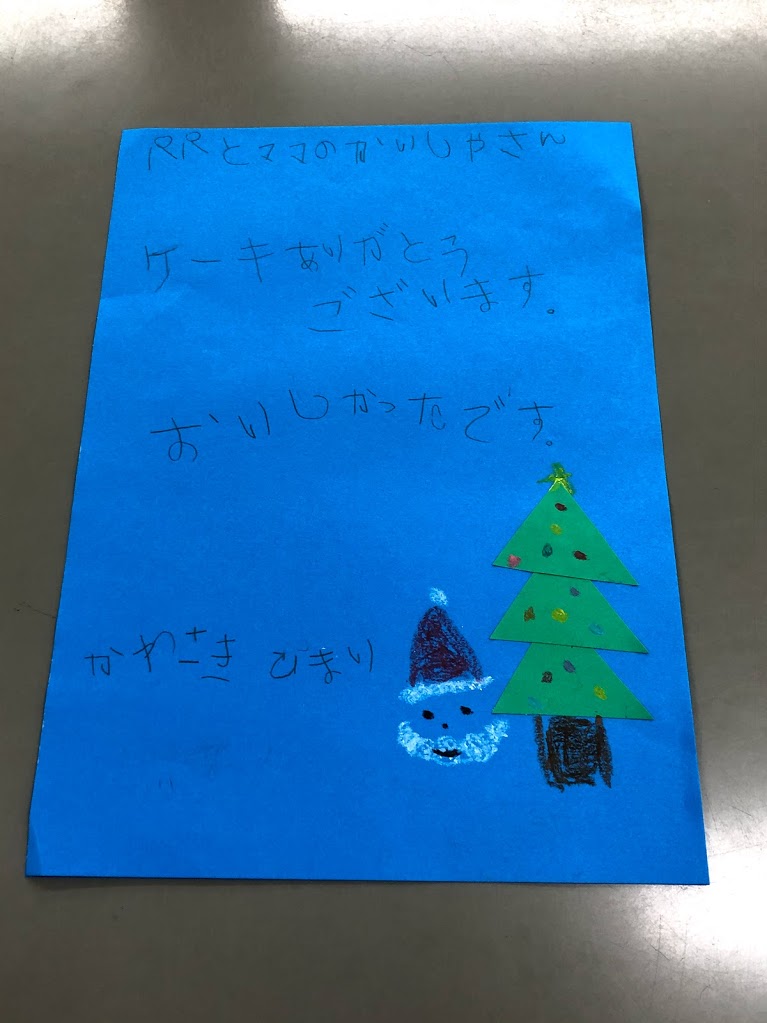 RRとママのかいしゃさん
ケーキありがとう
ございます。
おいしかったです。
かわさき ひまり